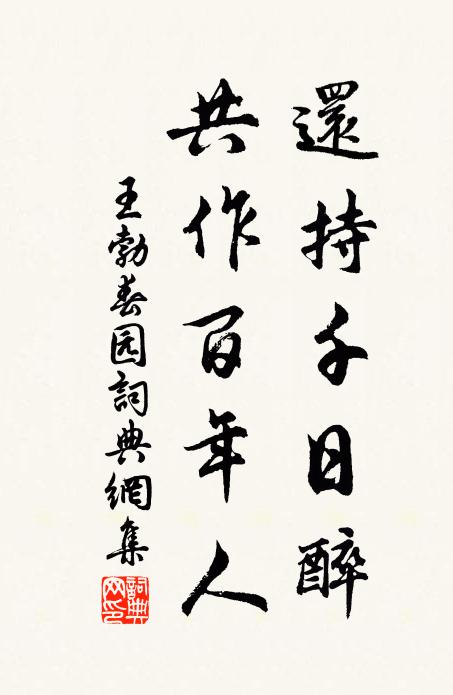 還持千日醉
共作百年人
王勃春园詞典網集
詞典网印